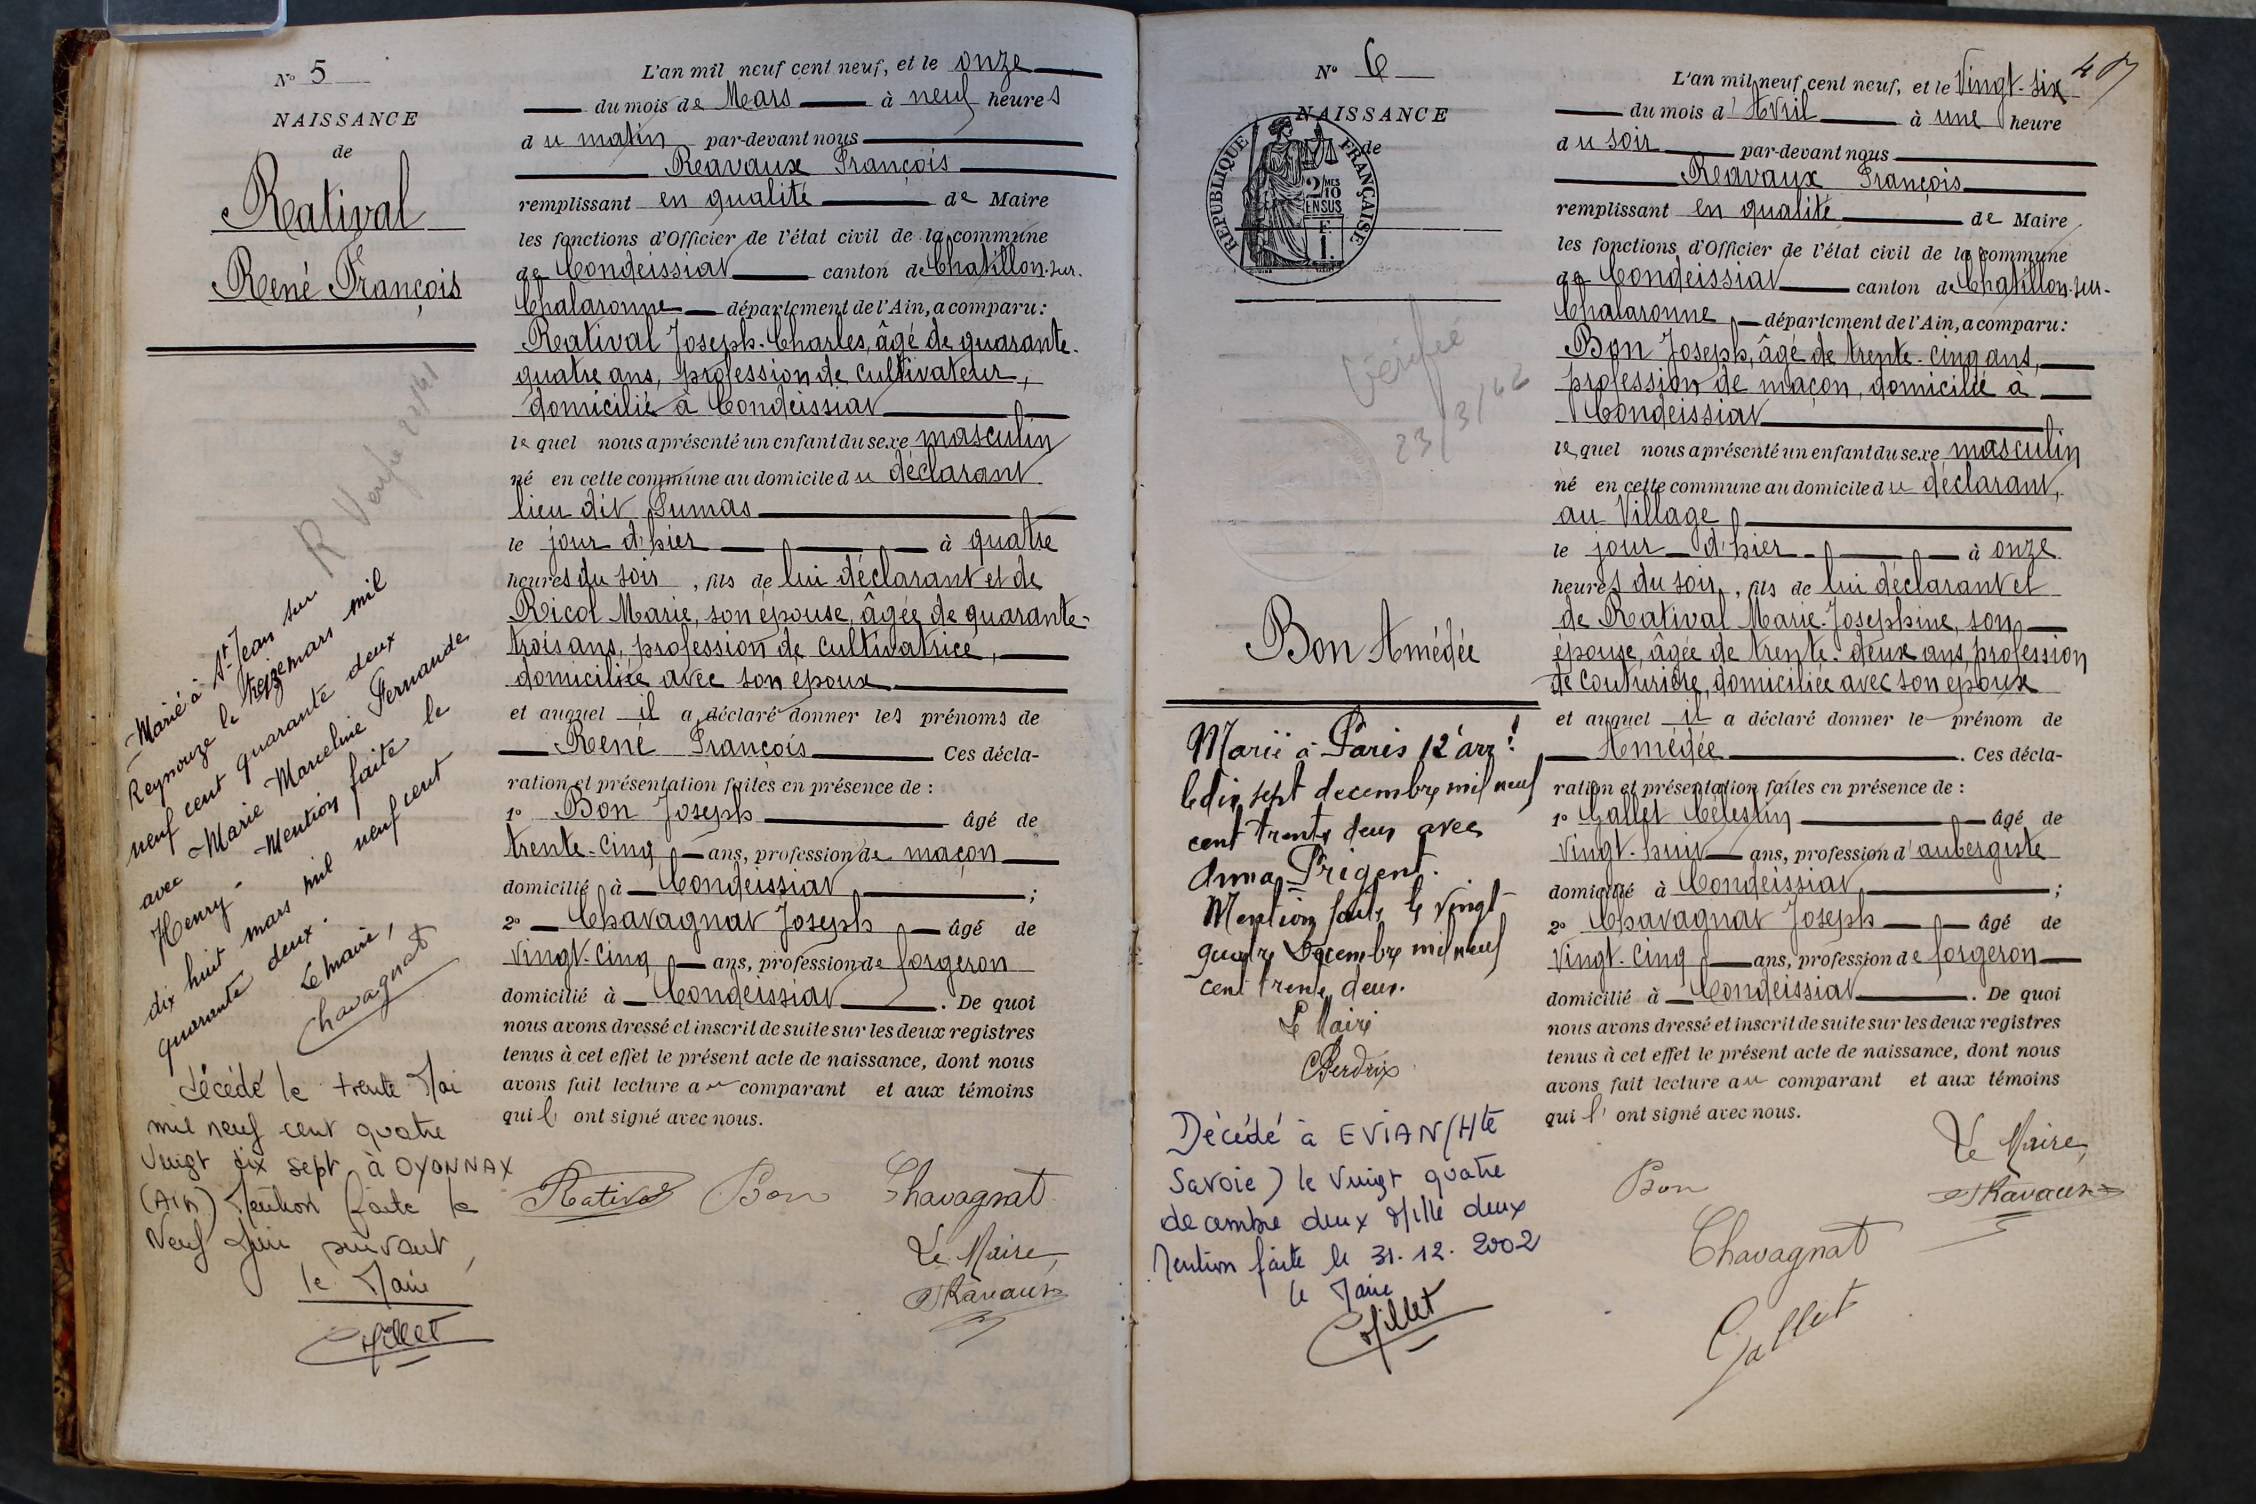 N° 5
NAISSANCE
de
Ratival
René François
R Vérifié
Marié à St Jean sur
Reyssouze le treize mars mil
neuf cent quarante deux
avec Marie Marceline Fernande
Henry - Mention faite le
dix huit mars mil neuf cent
quarante deux.
Le maire,
Chavagnat
Décédé le trente Mai
mil neuf cent quatre
vingt dix sept à OYONNAX
(AIN) Mention faite le
Neuf Juin suivant,
le Maire
Millet
L'an mil neuf cent neuf, et le onze
du mois de Mars à neuf heures
du matin par-devant nous
Ravaux François
remplissant en qualité de Maire
les fonctions d'Officier de l'état civil de la commune
de Condeissiat canton de Chatillon-sur-
Chalaronne département de l'Ain, a comparu:
Ratival Joseph-Charles, âgé de quarante-
quatre ans, profession de cultivateur,
domicilié à Condeissiat
lequel nous a présenté un enfant du sexe masculin
né en cette commune au domicile du déclarant
lieu dit Sumas
le jour d'hier à quatre
heures du soir, fils de lui déclarant et de
Ricol Marie, son épouse, âgée de quarante-
trois ans, profession de cultivatrice,
domiciliée avec son époux
et auquel il a déclaré donner les prénoms de
René François Ces décla-
ration et présentation faites en présence de :
1° Bon Joseph âgé de
trente-cinq ans, profession de maçon
domicilié à Condeissiat ;
2° Chavagnat Joseph âgé de
vingt-cinq ans, profession de forgeron
domicilié à Condeissiat. De quoi
nous avons dressé et inscrit de suite sur les deux registres
tenus à cet effet le présent acte de naissance, dont nous
avons fait lecture au comparant et aux témoins
qui l' ont signé avec nous.
Rativał Bon Chavagnat
Le Maire,
Ravaux
N° 6
NAISSANCE
de
REPUBLIQUE FRANÇAISE
2/10 MES
EN SUS
F.
1.
Vérifié
23/3/42
Bon Amédée
Marié à Paris 12e arrt
le dix sept decembre mil neuf
cent trente deux avec
Anna Prigent.
Mention faite le vingt
quatre Décembre mil neuf
cent trente deux.
Le Maire
Perdrix
Décédé à EVIAN (Hte
Savoie) le vingt quatre
decembre deux Mille deux
Mention faite le 31.12.2002
le Maire
Millet
L'an mil neuf cent neuf, et le Vingt-six
du mois d'Avril à une heure
du soir par-devant nous
Ravaux François
remplissant en qualité de Maire
les fonctions d'Officier de l'état civil de la commune
de Condeissiat canton de Chatillon-sur-
Chalaronne département de l'Ain, a comparu:
Bon Joseph, âgé de trente-cinq ans,
profession de maçon, domicilié à
Condeissiat
lequel nous a présenté un enfant du sexe masculin
né en cette commune au domicile du déclarant,
au Village
le jour d'hier à onze
heures du soir, fils de lui déclarant et
de Rativał Marie-Josephine, son
épouse, âgée de trente-deux ans, profession
de couturière, domiciliée avec son époux
et auquel il a déclaré donner le prénom de
Amédée. Ces décla-
ration et présentation faites en présence de :
1° Gallet Célestin âgé de
vingt-huit ans, profession d'aubergiste
domicilié à Condeissiat ;
2° Chavagnat Joseph âgé de
vingt-cinq ans, profession de forgeron
domicilié à Condeissiat. De quoi
nous avons dressé et inscrit de suite sur les deux registres
tenus à cet effet le présent acte de naissance, dont nous
avons fait lecture au comparant et aux témoins
qui l' ont signé avec nous.
Le Maire,
Bon Ravaux
Chavagnat
Gallet